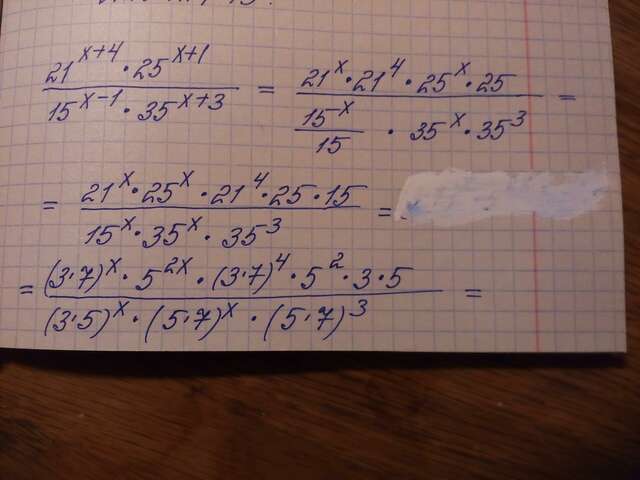 21^(x+4) · 25^(x+1) / 15^(x-1) · 35^(x+3) = 21^x · 21^4 · 25^x · 25 / (15^x / 15) · 35^x · 35^3 =
= 21^x · 25^x · 21^4 · 25 · 15 / 15^x · 35^x · 35^3 =
= (3·7)^x · 5^(2x) · (3·7)^4 · 5^2 · 3 · 5 / (3·5)^x · (5·7)^x · (5·7)^3 =